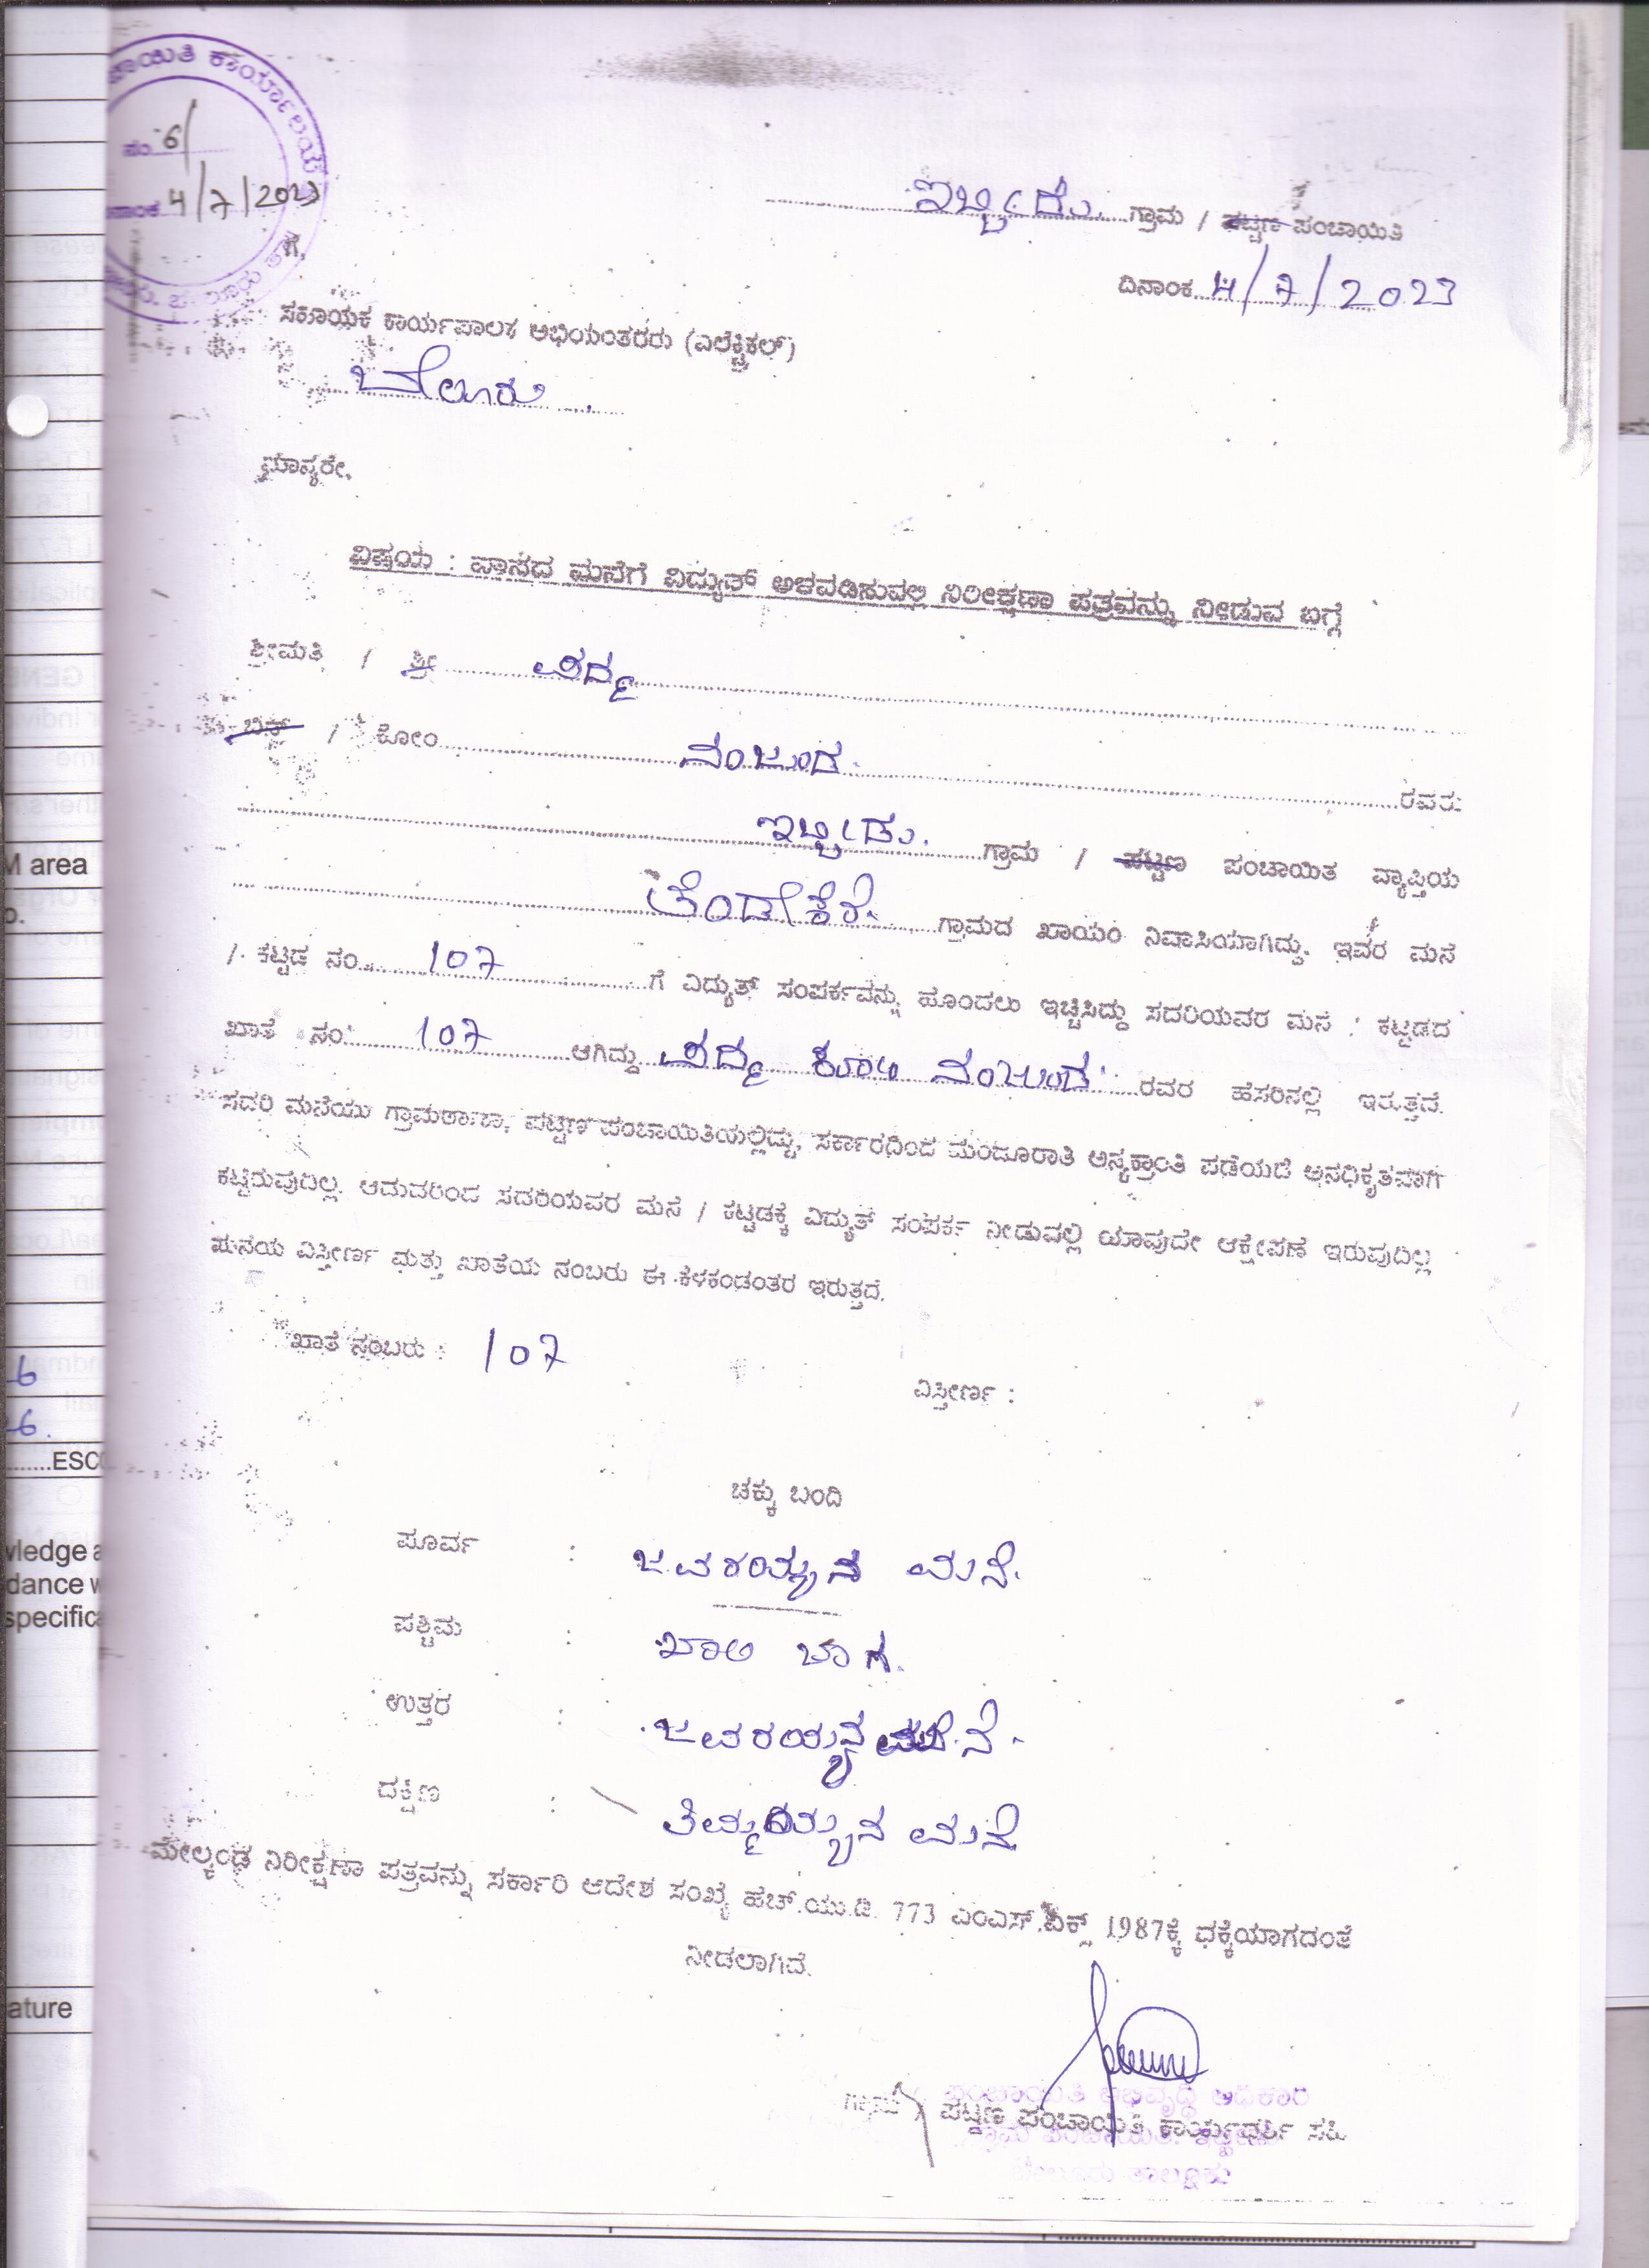 ಕಾರ್ಯಾಲಯ
ನಂ 6/
4/7/2023
ಇಬ್ಬೀಡು. ಗ್ರಾಮ / ಪಟ್ಟಣ ಪಂಚಾಯಿತಿ
ದಿನಾಂಕ 4/7/2023
ಗೆ,
ಸಹಾಯಕ ಕಾರ್ಯಪಾಲಕ ಅಭಿಯಂತರರು (ಎಲೆಕ್ಟ್ರಿಕಲ್)
ಬೇಲೂರು
ಮಾನ್ಯರೇ,
ವಿಷಯ : ವಾಸದ ಮನೆಗೆ ವಿದ್ಯುತ್ ಅಳವಡಿಸುವಲ್ಲಿ ನಿರೀಕ್ಷಣಾ ಪತ್ರವನ್ನು ನೀಡುವ ಬಗ್ಗೆ
ಶ್ರೀಮತಿ / ಶ್ರೀ ಪದ್ಮ
ಬಿನ್ / ಕೋಂ ನಂಜುಂಡ ರವರು
ಇಬ್ಬೀಡು. ಗ್ರಾಮ / ಪಟ್ಟಣ ಪಂಚಾಯಿತಿ ವ್ಯಾಪ್ತಿಯ
ಗ್ರಾಮದ ಖಾಯಂ ನಿವಾಸಿಯಾಗಿದ್ದು, ಇವರ ಮನೆ
/ ಕಟ್ಟಡ ನಂ. 107 ಗೆ ವಿದ್ಯುತ್ ಸಂಪರ್ಕವನ್ನು ಹೊಂದಲು ಇಚ್ಚಿಸಿದ್ದು ಸದರಿಯವರ ಮನೆ / ಕಟ್ಟಡದ
ಖಾತೆ ನಂ 107 ಆಗಿದ್ದು ಪದ್ಮ ಕೋಂ ನಂಜುಂಡ ರವರ ಹೆಸರಿನಲ್ಲಿ ಇರುತ್ತದೆ.
ಸದರಿ ಮನೆಯು ಗ್ರಾಮಠಾಣಾ, ಪಟ್ಟಣ ಪಂಚಾಯಿತಿಯಲ್ಲಿದ್ದು, ಸರ್ಕಾರದಿಂದ ಮಂಜೂರಾತಿ ಅನ್ಯಕ್ರಾಂತಿ ಪಡೆಯದೆ ಅನಧಿಕೃತವಾಗಿ
ಕಟ್ಟಿರುವುದಿಲ್ಲ. ಆದುದರಿಂದ ಸದರಿಯವರ ಮನೆ / ಕಟ್ಟಡಕ್ಕೆ ವಿದ್ಯುತ್ ಸಂಪರ್ಕ ನೀಡುವಲ್ಲಿ ಯಾವುದೇ ಆಕ್ಷೇಪಣೆ ಇರುವುದಿಲ್ಲ
ಮನೆಯ ವಿಸ್ತೀರ್ಣ ಮತ್ತು ಖಾತೆಯ ನಂಬರು ಈ ಕೆಳಕಂಡಂತರ ಇರುತ್ತದೆ.
ಖಾತೆ ನಂಬರು : 107
ವಿಸ್ತೀರ್ಣ :
ಚಕ್ಕು ಬಂದಿ
ಪೂರ್ವ : ಜವರಯ್ಯನ ಮನೆ.
ಪಶ್ಚಿಮ : ಖಾಲಿ ಜಾಗ.
ಉತ್ತರ : ಜವರಯ್ಯನ ಮನೆ.
ದಕ್ಷಿಣ : ತಿಮ್ಮಯ್ಯನ ಮನೆ
ಮೇಲ್ಕಂಡ ನಿರೀಕ್ಷಣಾ ಪತ್ರವನ್ನು ಸರ್ಕಾರಿ ಆದೇಶ ಸಂಖ್ಯೆ ಹೆಚ್.ಯು.ಡಿ. 773 ಎಂಎಸ್.ಎಕ್ಸ್ 1987ಕ್ಕೆ ಧಕ್ಕೆಯಾಗದಂತೆ
ನೀಡಲಾಗಿದೆ.
ಪಂಚಾಯಿತಿ ಅಭಿವೃದ್ಧಿ ಅಧಿಕಾರಿ
ಗ್ರಾಮ / ಪಟ್ಟಣ ಪಂಚಾಯಿತಿ ಕಾರ್ಯದರ್ಶಿ ಸಹಿ
ಗ್ರಾಮ ಪಂಚಾಯಿತಿ, ಇಬ್ಬೀಡು
ಬೇಲೂರು ತಾಲ್ಲೂಕು
M area
ESC
wledge a
dance w
specifica
ature